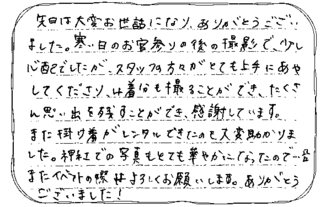 先日は大変お世話になり、ありがとうござい
ました。寒い日のお宮参りの後の撮影で、少し
心配でしたが、スタッフの方々がとても上手にあや
してくださり、は着物も撮ることができ、たくさ
ん思い出を残すことができ、感謝しています。
また掛け着がレンタルできたので大変助かりま
した。神社での写真もとても華やかになったので…
またイベントの際はよろしくお願いします。ありがとう
ございました!